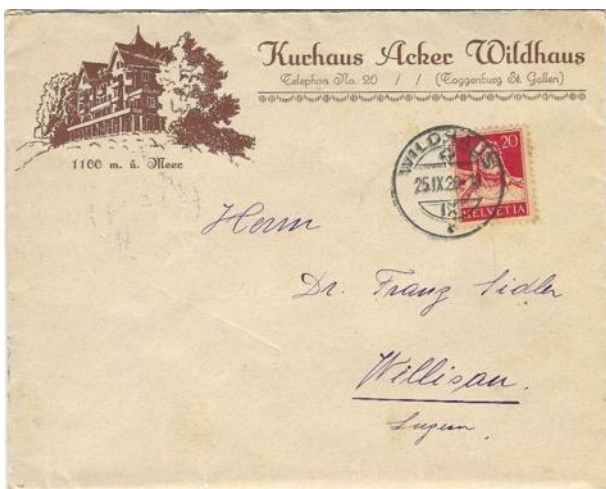 Kurhaus Acker Wildhaus
Telephon No. 20 / / (Toggenburg St. Gallen)
1100 m. ü. Meer
WILDHAUS
25.IX.26
20
HELVETIA
Herrn
Dr. Franz Sidler
Willisau.
Luzern